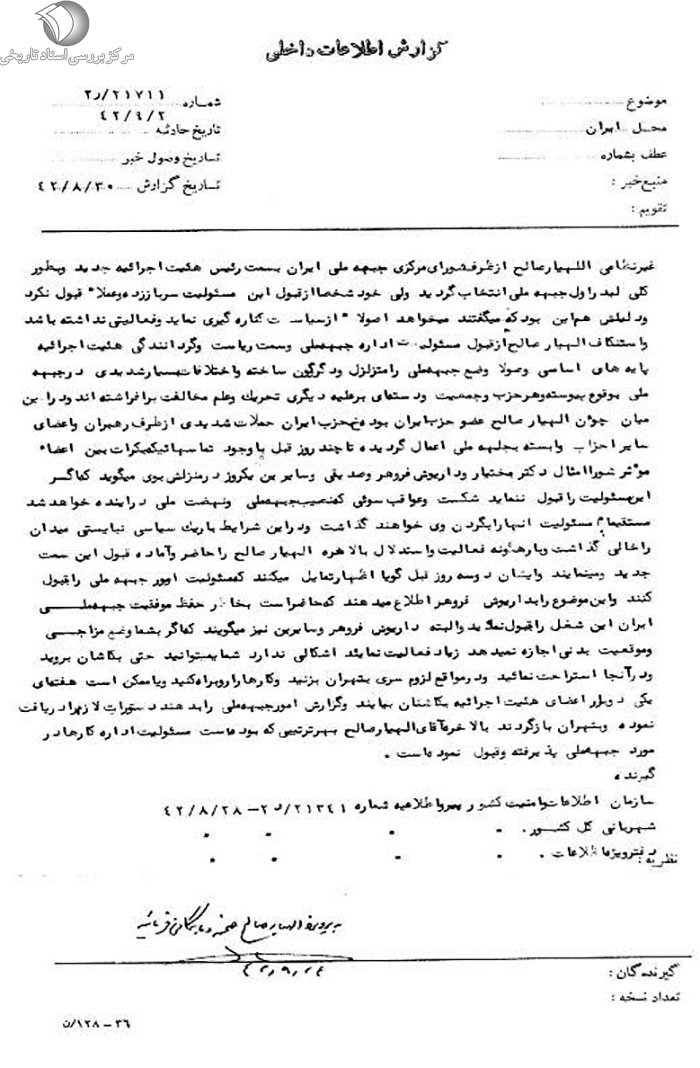 مرکز بررسی اسناد تاریخی
گزارش اطلاعات داخلی
موضوع
محل ایران
عطف بشماره
منبع خبر :
تقویم :
شماره ۲۱۷۱۱/۲د
۴۲/۹/۲
تاریخ حادثه
تاریخ وصول خبر
تاریخ گزارش ۴۲/۸/۳۰
غیرنظامی اللهیار صالح از طرف شورای مرکزی جبهه ملی ایران بسمت رئیس هیئت اجرائیه جدید وبطور
کلی لیدر اول جبهه ملی انتخاب گردید ولی خود شخصا از قبول این مسئولیت سرباز زده وعملاً قبول نکرد
ودلیلش هم این بود که میگفتند میخواهد اصولاً از سیاست کناره گیری نماید وفعالیتی نداشته باشد
واستنکاف الهیار صالح از قبول مسئولیت اداره جبهه ملی وسمت ریاست وگردانندگی هئیت اجرائیه
پایه های اساسی وصولا وضع جبهه ملی را متزلزل ودگرگون ساخته واختلافات بسیار شدیدی درجبهه
ملی بوقوع پیوسته وهر حزب وجمعیت ودسته‌ای برعلیه دیگری تحریک وعلم مخالفت برافراشته اند ودر این
میان چون الهیار صالح عضو حزب ایران بوده حزب ایران حملات شدیدی از طرف رهبران واعضای
سایر احزاب وابسته بجبهه ملی اعمال گردیده تا چند روز قبل با وجود تماسهائیکه بکرات بین اعضاء
موثر شورا امثال دکتر بختیار وداریوش فروهر وصدیقی وسایرین یکروز درمنزلش بوی میگوید که اگر
این مسئولیت را قبول ننماید شکست وعواقب سوئی که نصیب جبهه ملی ونهضت ملی در اینده خواهد شد
مستقیما مسئولیت انها را بگردن وی خواهند گذاشت ودر این شرایط باریک سیاسی نبایستی میدان
را خالی گذاشت وبا هرگونه فعالیت واستدلال بالاخره الهیار صالح را حاضر وآماده قبول این سمت
جدید ومینمایند وایشان دوسه روز قبل گویا اظهار تمایل میکنند که مسئولیت امور جبهه ملی را قبول
کنند واین موضوع را بداریوش فروهر اطلاع میدهند که حاضر است بخاطر حفظ موفقیت جبهه ملی
ایران این شغل را قبول نماید والبته داریوش فروهر وسایرین نیز میگویند که اگر بشما وضع مزاجی
وموقعیت بدنی اجازه نمیدهد زیاد فعالیت نمائید اشکالی ندارد شما میتوانید حتی بکاشان بروید
ودر آنجا استراحت نمائید ودر مواقع لزوم سری بتهران بزنید وکارها را روبراه کنید ویا ممکن است هفته‌ای
یکی دوبار اعضای هئیت اجرائیه بکاشان بیایند وگزارش امور جبهه ملی را بدهند دستورات لازم را دریافت
نموده وبتهران بازگردند بالاخره آقای الهیار صالح بهر ترتیبی که بوده است مسئولیت اداره کارها در
مورد جبهه ملی پذیرفته وقبول نموده است .
گیرنده
سازمان اطلاعات وامنیت کشور پیرو اطلاعیه شماره ۲۱۳۴۱/۲د – ۴۲/۸/۲۸
شهربانی کل کشور .
دفتر ویژه اطلاعات .
نظریه :
به پرونده الهیار صالح ضمیمه و بایگانی فرمائید
گیرندگان :
تعداد نسخه :
۳۶ – ۱۲۸/ن